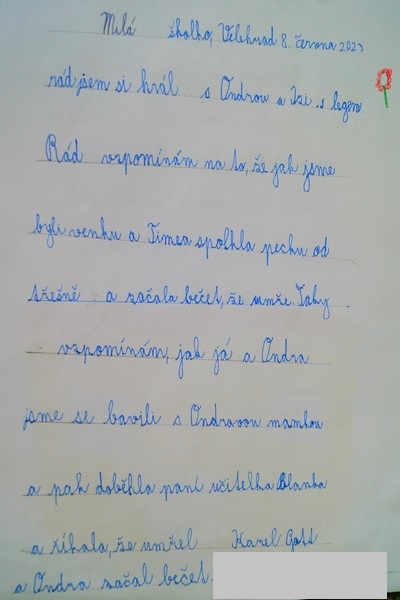 Milá školko, Velehrad 8. června 2023
rád jsem si hrál s Ondrou a Izi s legem.
Rád vzpomínám na to, že jak jsme
byli venku a Timea spolkla pecku od
třešně a začala bečet, že umře. Taky
vzpomínám, jak já a Ondra
jsme se bavili s Ondravou mamkou
a pak doběhla paní učitelka Blanka
a říkala, že umřel Karel Gott
a Ondra začal bečet.